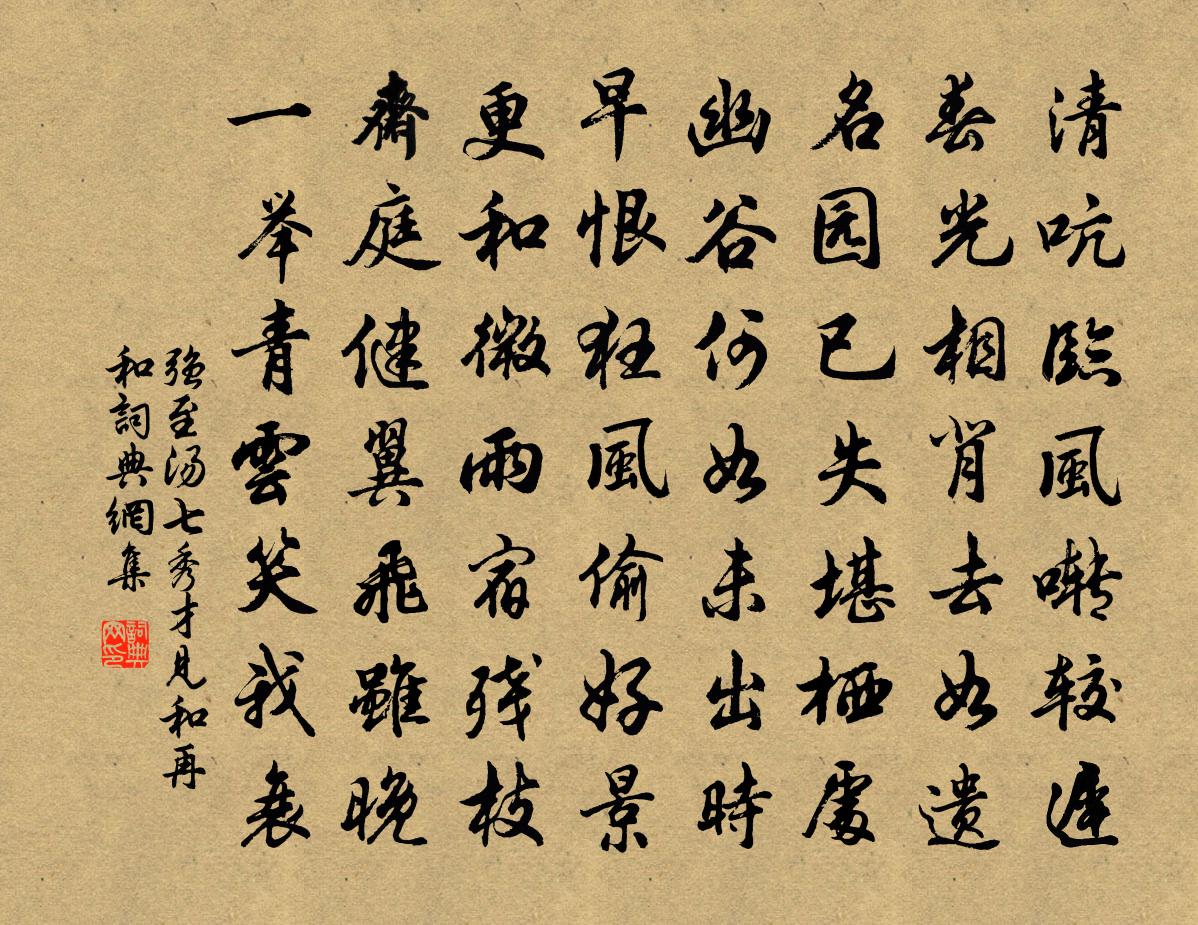 清吭臨風囀较遲
春光相背去如遗
名园已失堪栖處
幽谷何如未出時
早恨狂風偷好景
更和微雨宿残枝
齋庭健翼飛雖晚
一举青雲笑我衰
强至汤七秀才見和再
和詞典網集
詞典网印